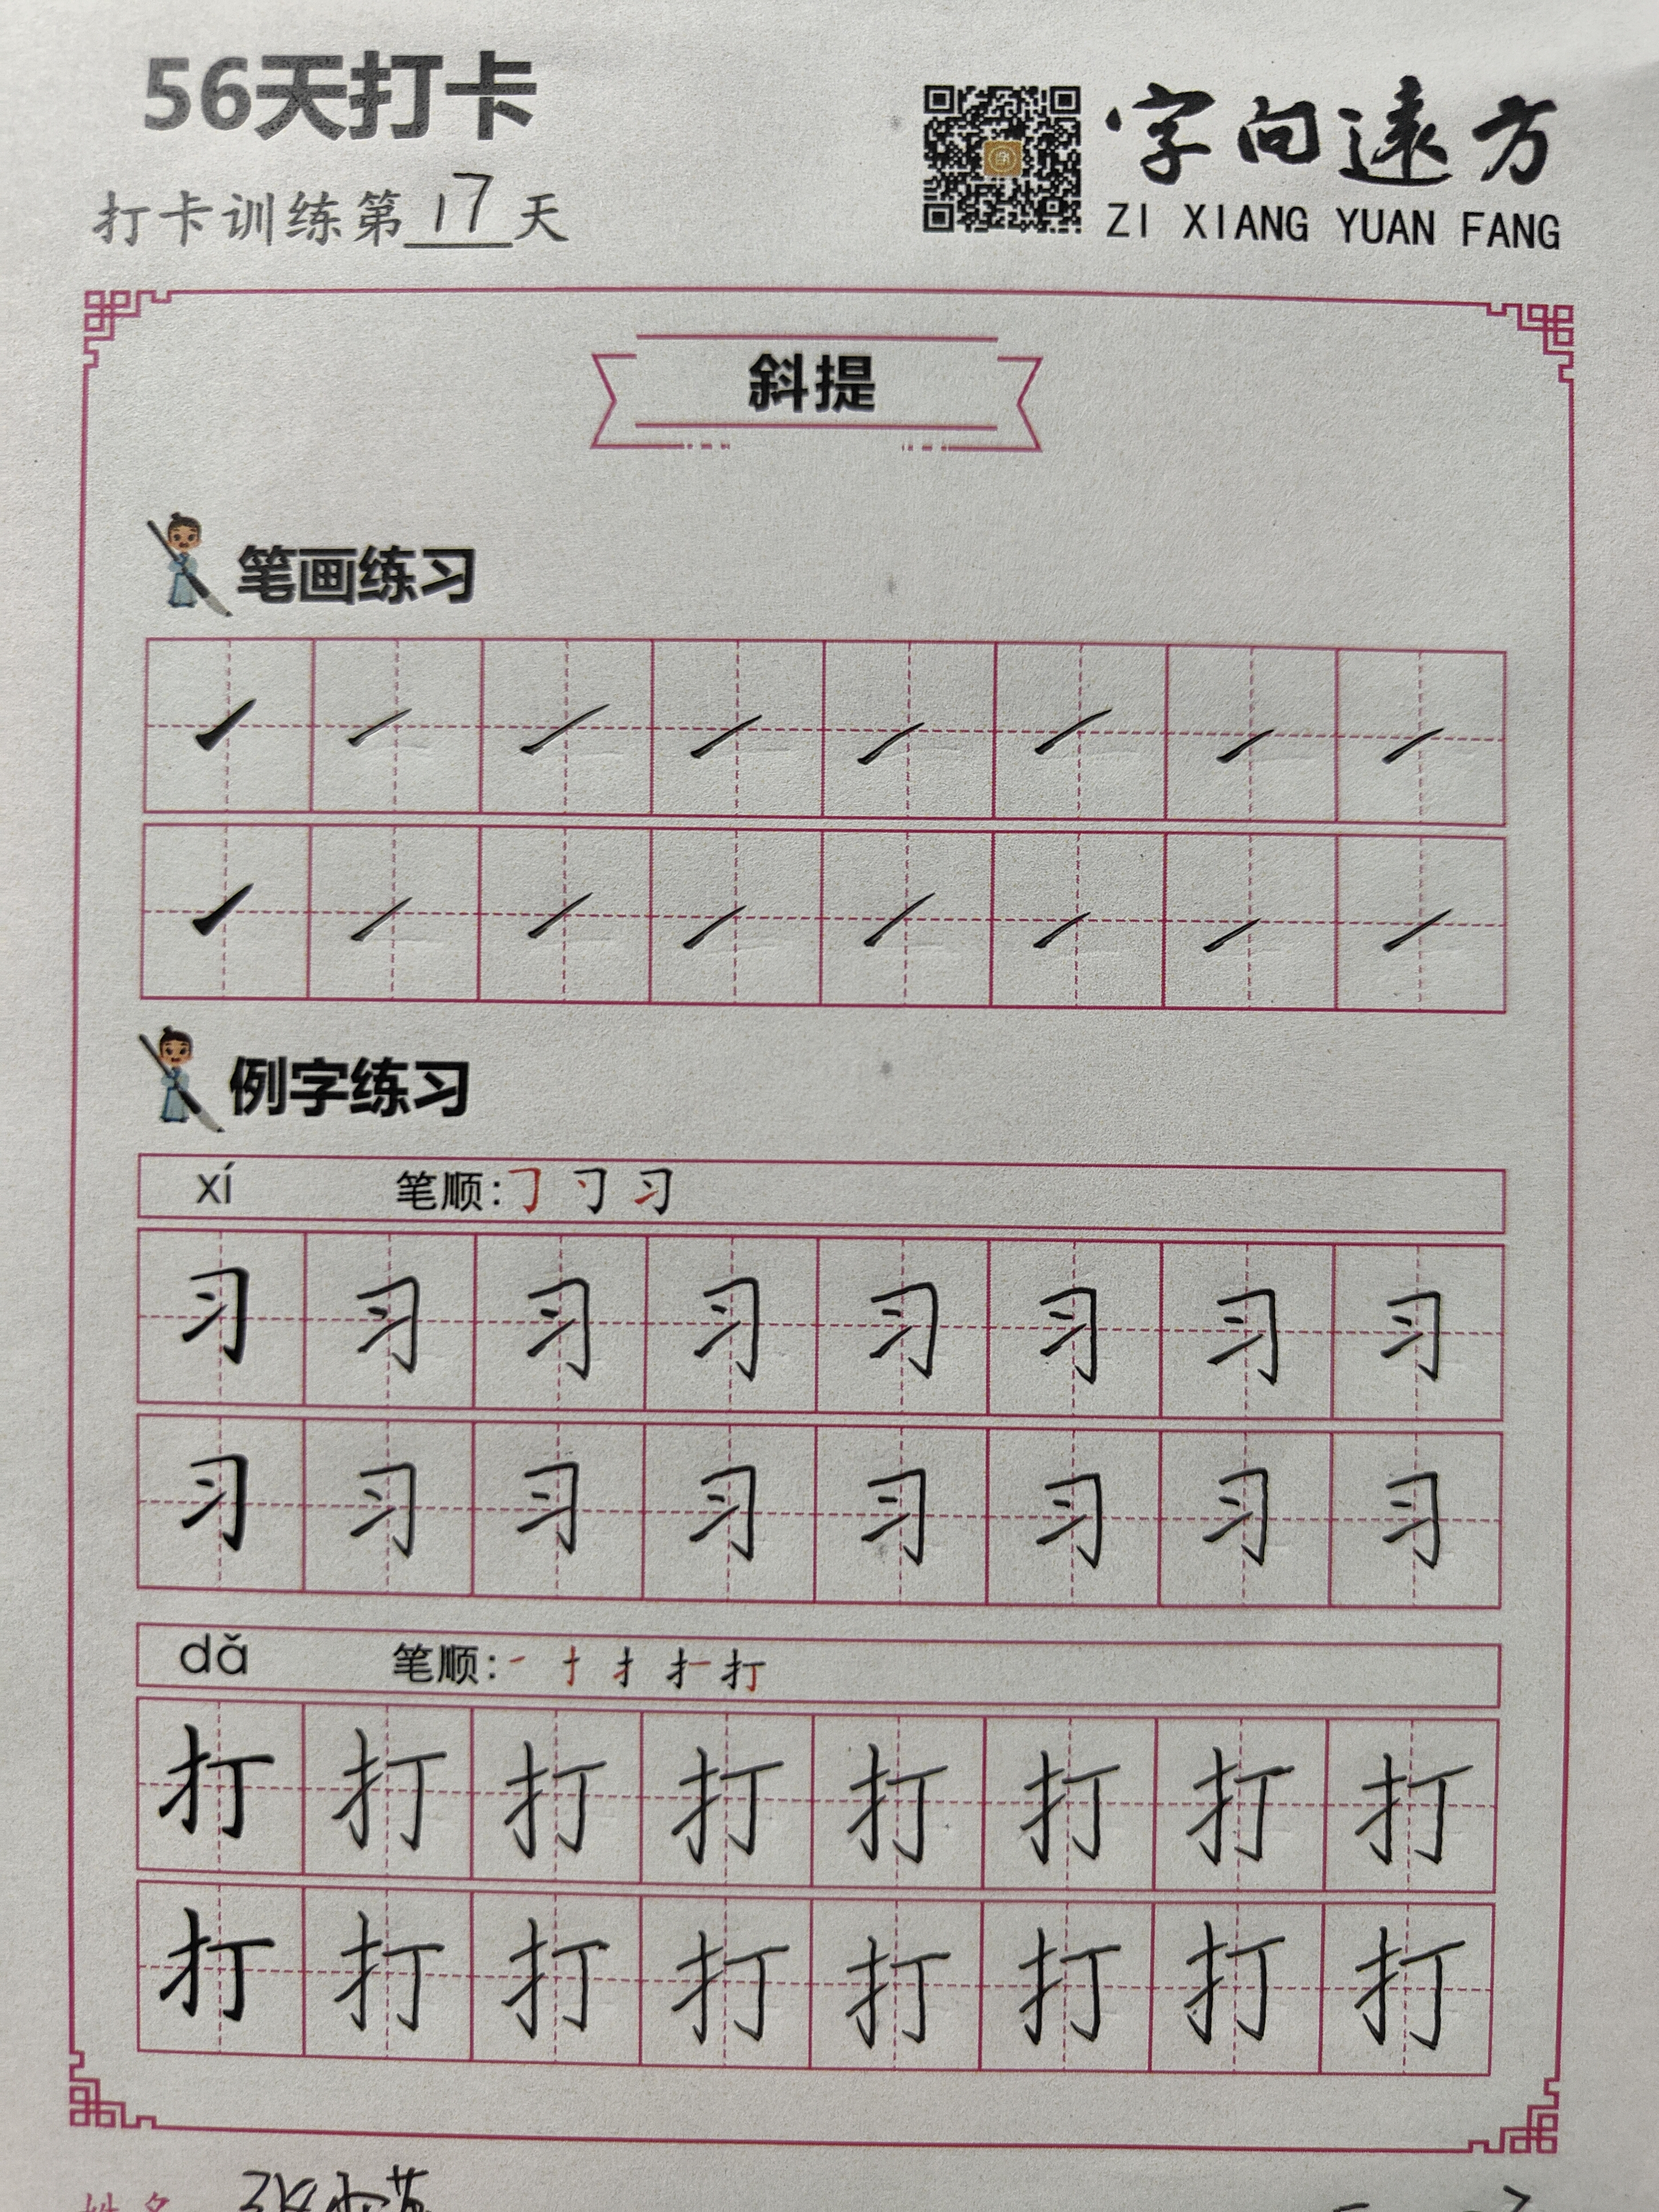 56天打卡
字向遠方
打卡训练第17天
ZI XIANG YUAN FANG
斜提
笔画练习
例字练习
xí 笔顺:
习 习 习 习 习 习 习 习
习 习 习 习 习 习 习 习
dǎ 笔顺:
打 打 打 打 打 打 打 打
打 打 打 打 打 打 打 打